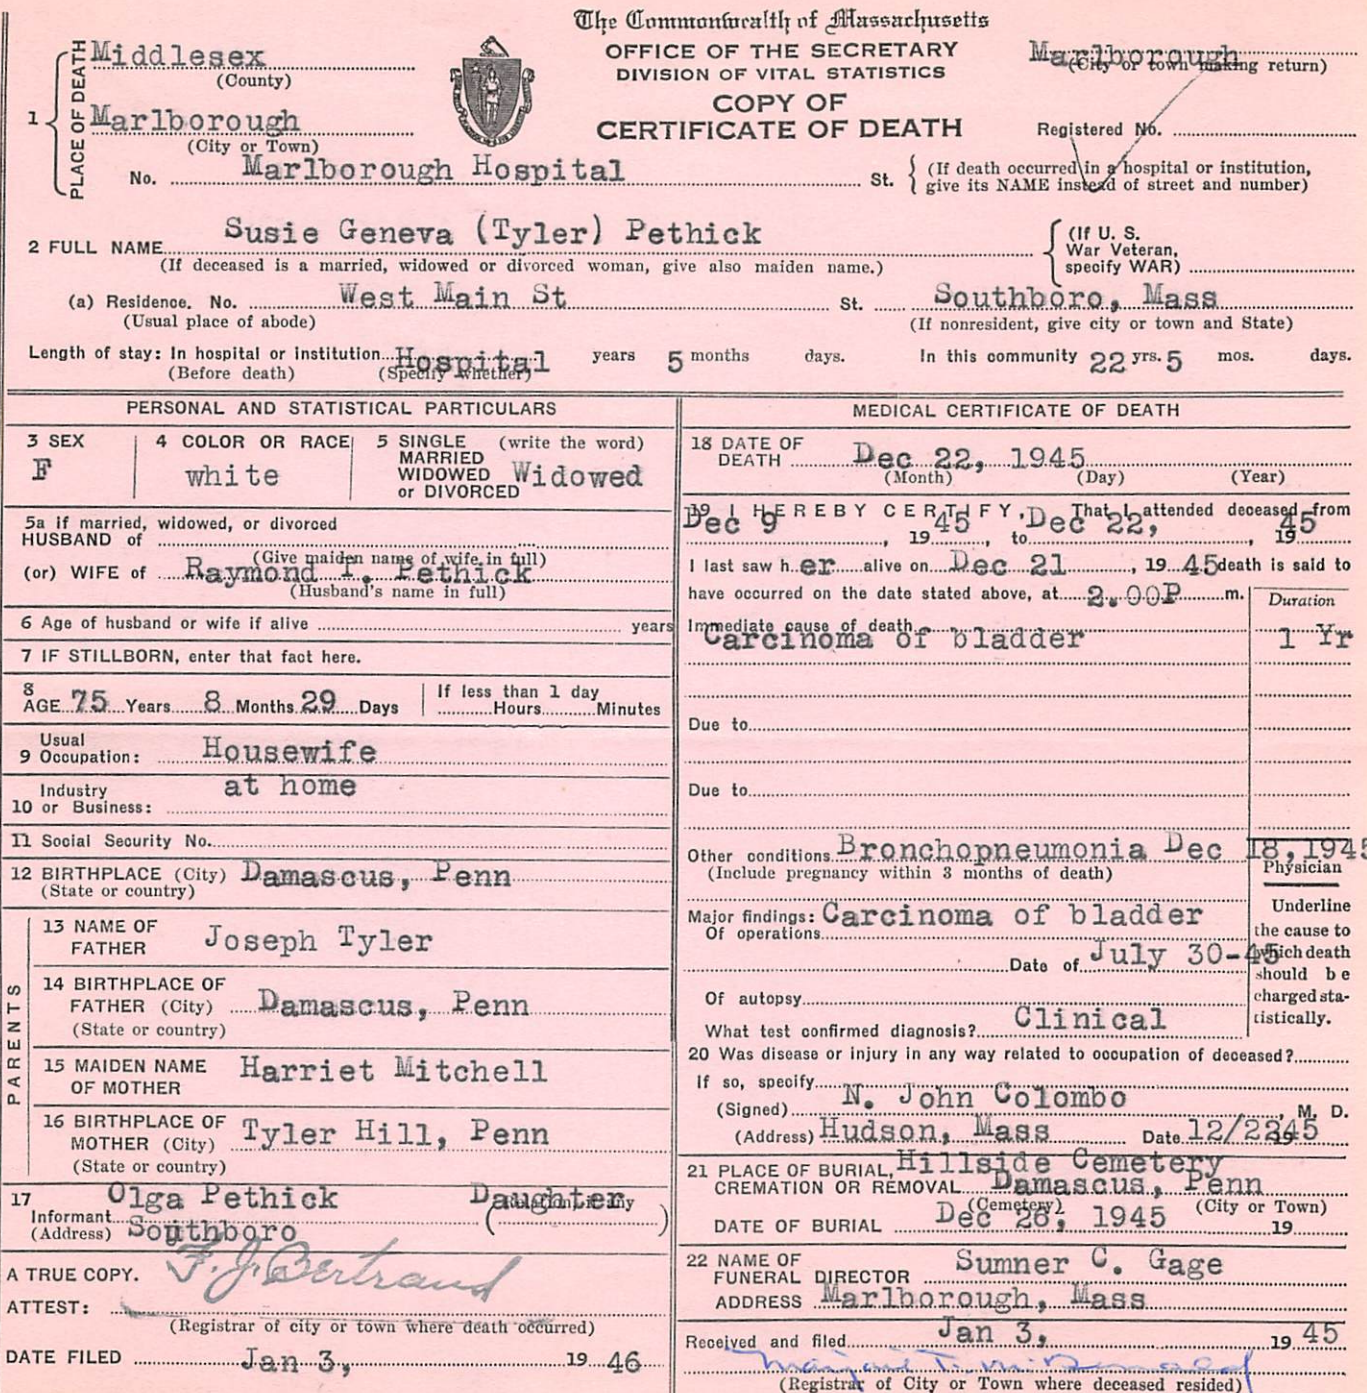 The Commonwealth of Massachusetts
OFFICE OF THE SECRETARY
DIVISION OF VITAL STATISTICS
COPY OF
CERTIFICATE OF DEATH
Marlborough
(City or town making return)
Registered No.
1
PLACE OF DEATH
Middlesex
(County)
Marlborough
(City or Town)
No. Marlborough Hospital St. (If death occurred in a hospital or institution, give its NAME instead of street and number)
2 FULL NAME Susie Geneva (Tyler) Pethick
(If deceased is a married, widowed or divorced woman, give also maiden name.)
(If U. S. War Veteran, specify WAR)
(a) Residence. No. West Main St St. Southboro, Mass
(Usual place of abode) (If nonresident, give city or town and State)
Length of stay: In hospital or institution Hospital years 5 months days. In this community 22 yrs. 5 mos. days.
(Before death) (Specify whether)
PERSONAL AND STATISTICAL PARTICULARS
3 SEX
F
4 COLOR OR RACE
white
5 SINGLE (write the word)
MARRIED
WIDOWED
or DIVORCED
Widowed
5a If married, widowed, or divorced
HUSBAND of
(Give maiden name of wife in full)
(or) WIFE of Raymond T. Pethick
(Husband's name in full)
6 Age of husband or wife if alive years
7 IF STILLBORN, enter that fact here.
8 AGE 75 Years 8 Months 29 Days
If less than 1 day
Hours Minutes
9 Usual Occupation: Housewife
10 Industry or Business: at home
11 Social Security No.
12 BIRTHPLACE (City) Damascus, Penn
(State or country)
PARENTS
13 NAME OF FATHER Joseph Tyler
14 BIRTHPLACE OF FATHER (City) Damascus, Penn
(State or country)
15 MAIDEN NAME OF MOTHER Harriet Mitchell
16 BIRTHPLACE OF MOTHER (City) Tyler Hill, Penn
(State or country)
17 Informant Olga Pethick Daughter
(Address) Southboro
A TRUE COPY.
F. J. Bertrand
ATTEST:
(Registrar of city or town where death occurred)
DATE FILED Jan 3, 19 46
MEDICAL CERTIFICATE OF DEATH
18 DATE OF DEATH Dec 22, 1945
(Month) (Day) (Year)
19 I HEREBY CERTIFY, That I attended deceased from
Dec 9, 19 45, to Dec 22, 19 45
I last saw h er alive on Dec 21, 19 45 death is said to
have occurred on the date stated above, at 2.00P m.
Duration
Immediate cause of death
Carcinoma of bladder 1 Yr
Due to
Due to
Other conditions Bronchopneumonia Dec 18, 1945
(Include pregnancy within 3 months of death)
Physician
Underline the cause to which death should be charged statistically.
Major findings: Carcinoma of bladder
Of operations
Date of July 30-45
Of autopsy
What test confirmed diagnosis? Clinical
20 Was disease or injury in any way related to occupation of deceased?
If so, specify
(Signed) N. John Colombo, M. D.
(Address) Hudson, Mass Date 12/22 19 45
21 PLACE OF BURIAL, Hillside Cemetery
CREMATION OR REMOVAL Damascus, Penn
(Cemetery) (City or Town)
DATE OF BURIAL Dec 26, 1945 19
22 NAME OF FUNERAL DIRECTOR Sumner C. Gage
ADDRESS Marlborough, Mass
Received and filed Jan 3, 19 45
(Registrar of City or Town where deceased resided)